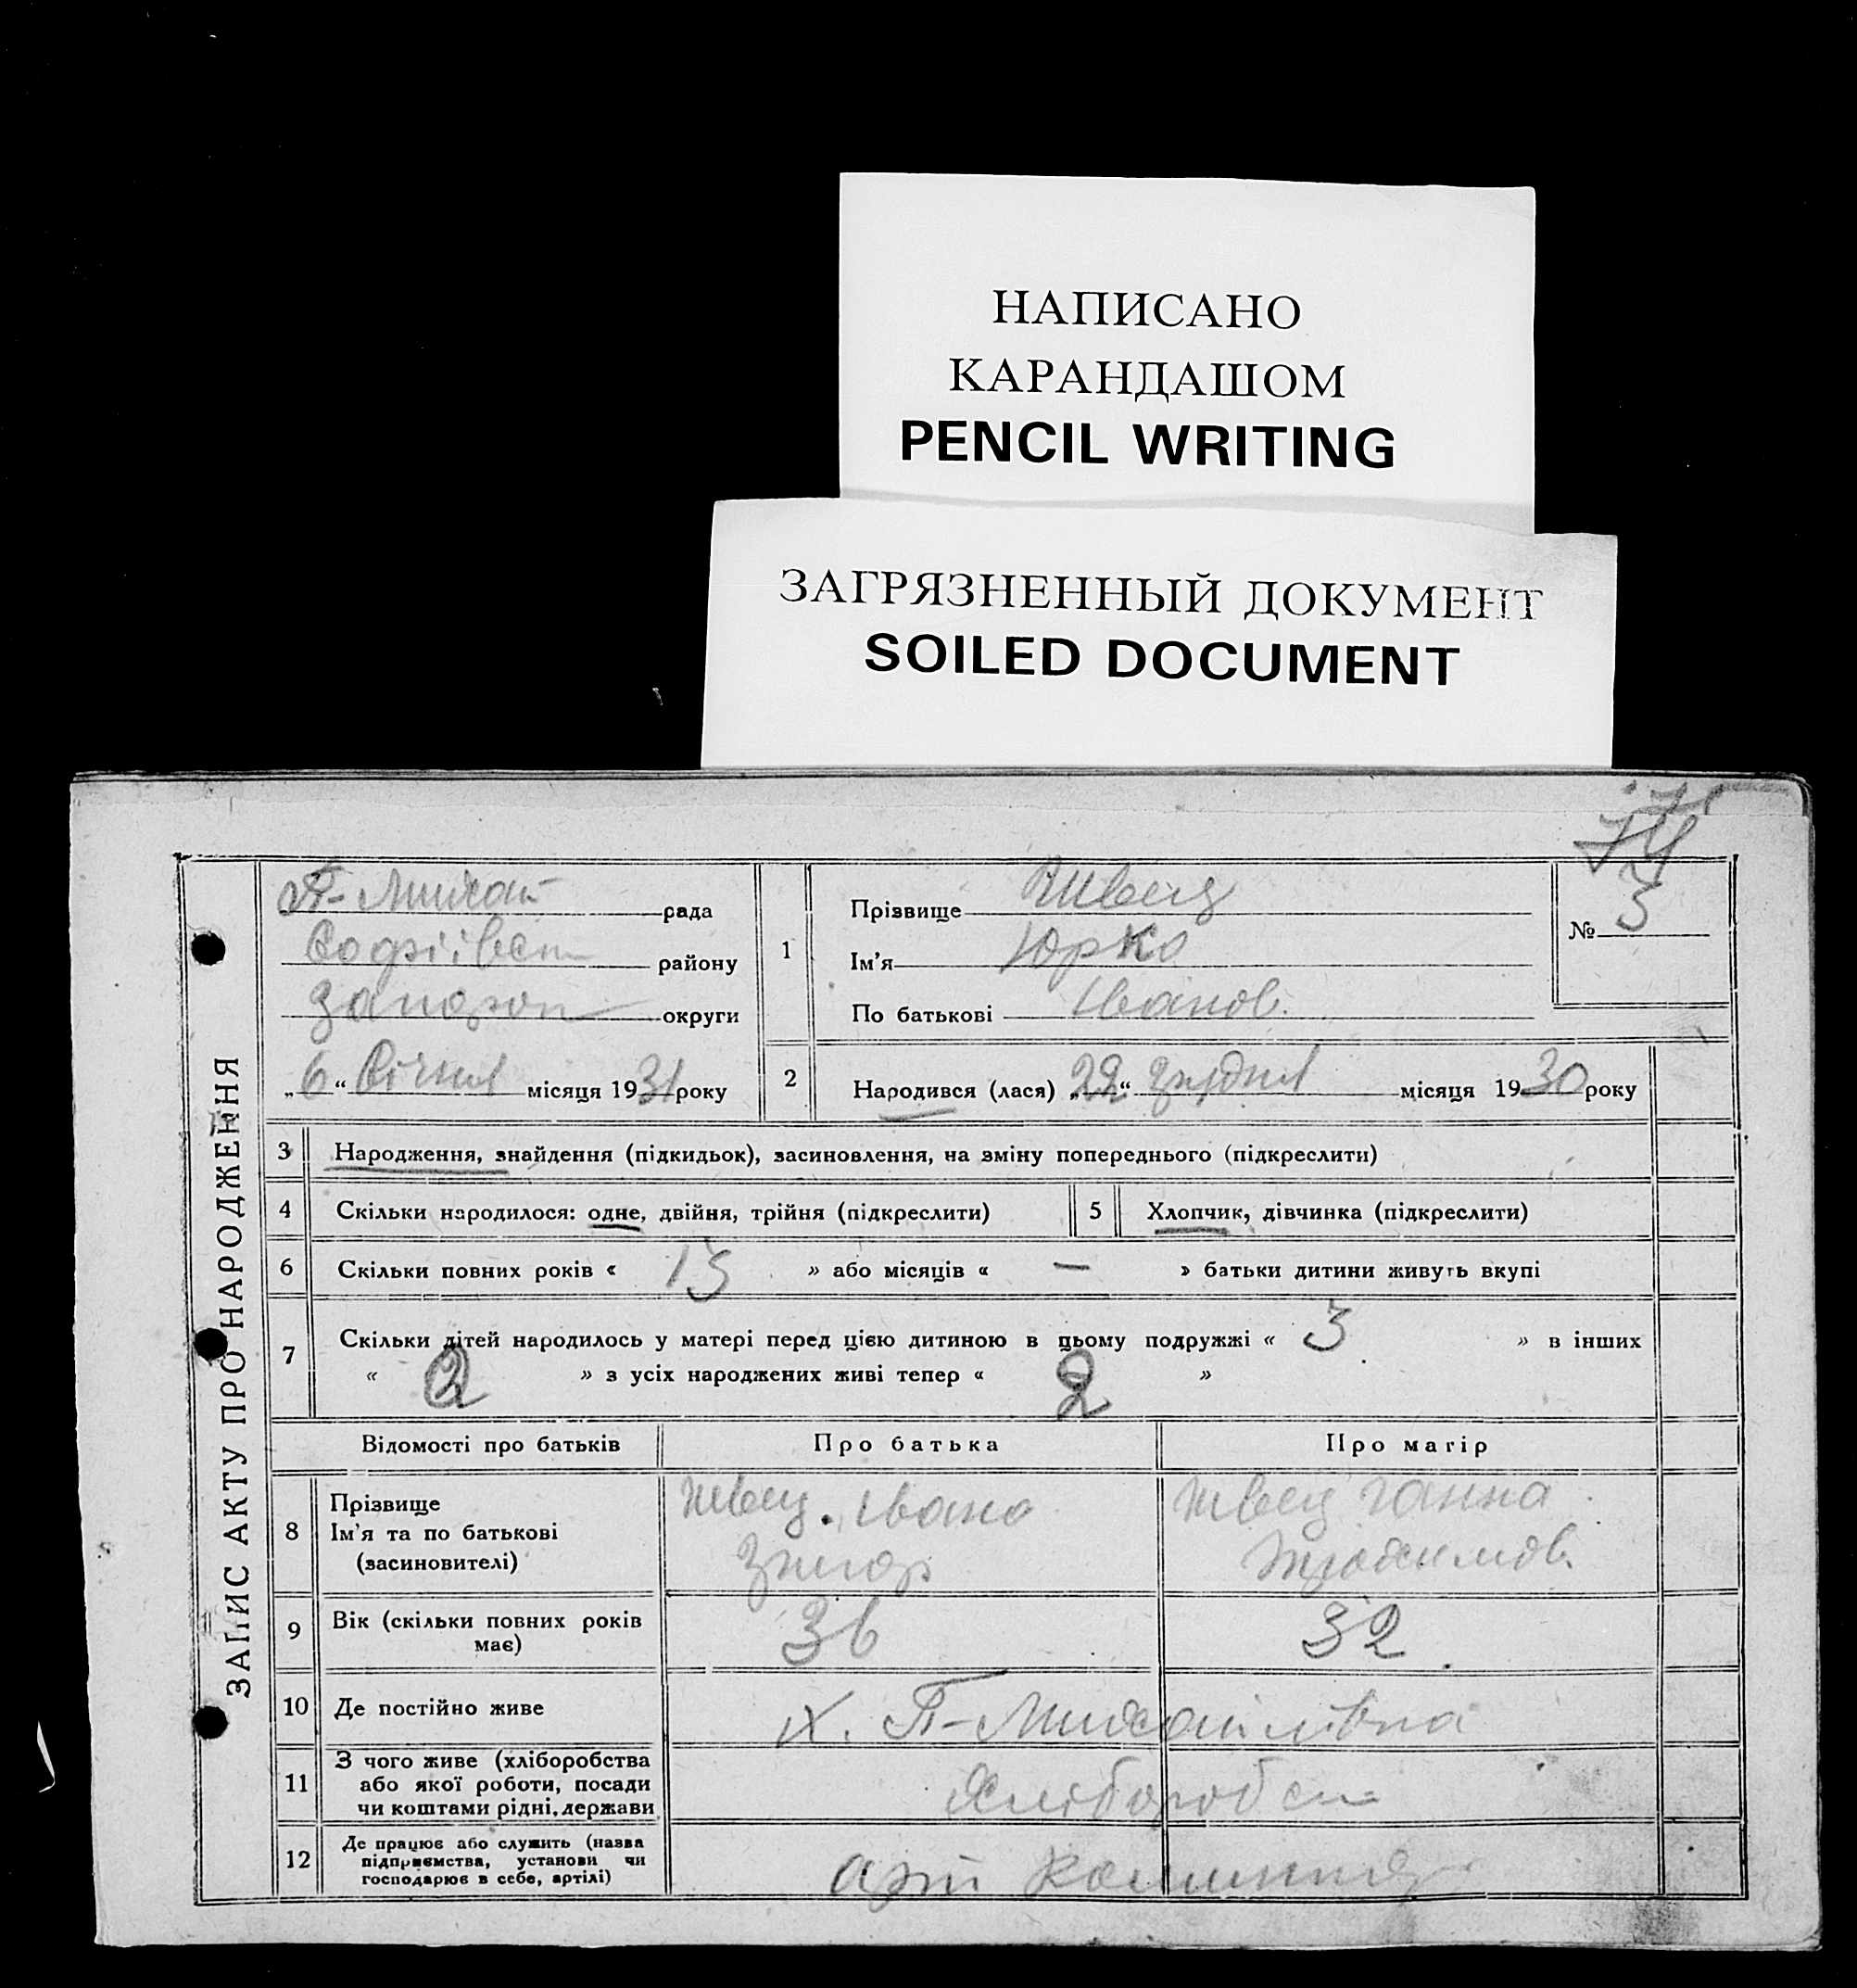 НАПИСАНО
КАРАНДАШОМ
PENCIL WRITING
ЗАГРЯЗНЕННЫЙ ДОКУМЕНТ
SOILED DOCUMENT
ЗАПИС АКТУ ПРО НАРОДЖЕННЯ
П-Михай рада
Софіївськ району
Запоріз округи
„6“ Січня місяця 1931 року
1
Прізвище Швець
Ім'я Юрко
По батькові Іванов.
№ 3
2
Народився (лася) „22“ грудня місяця 1930 року
3 Народження, знайдення (підкидьок), засиновлення, на зміну попереднього (підкреслити)
4 Скільки народилося: одне, двійня, трійня (підкреслити)
5 Хлопчик, дівчинка (підкреслити)
6 Скільки повних років « 13 » або місяців « — » батьки дитини живуть вкупі
7 Скільки дітей народилось у матері перед цією дитиною в цьому подружжі « 3 » в інших
« » з усіх народжених живі тепер « 2 »
Відомості про батьків Про батька Про матір
8
Прізвище
Ім'я та по батькові
(засиновителі)
Швець Івано
Григор
Швець Ганна
Трохимов.
9 Вік (скільки повних років
має)
36
32
10 Де постійно живе х. П-Михайлівка
11 З чого живе (хліборобства
або якої роботи, посади
чи коштами рідні, держави
Хліборобст
12 Де працює або служить (назва
підприємства, установи чи
господарює в себе, артілі)
арт